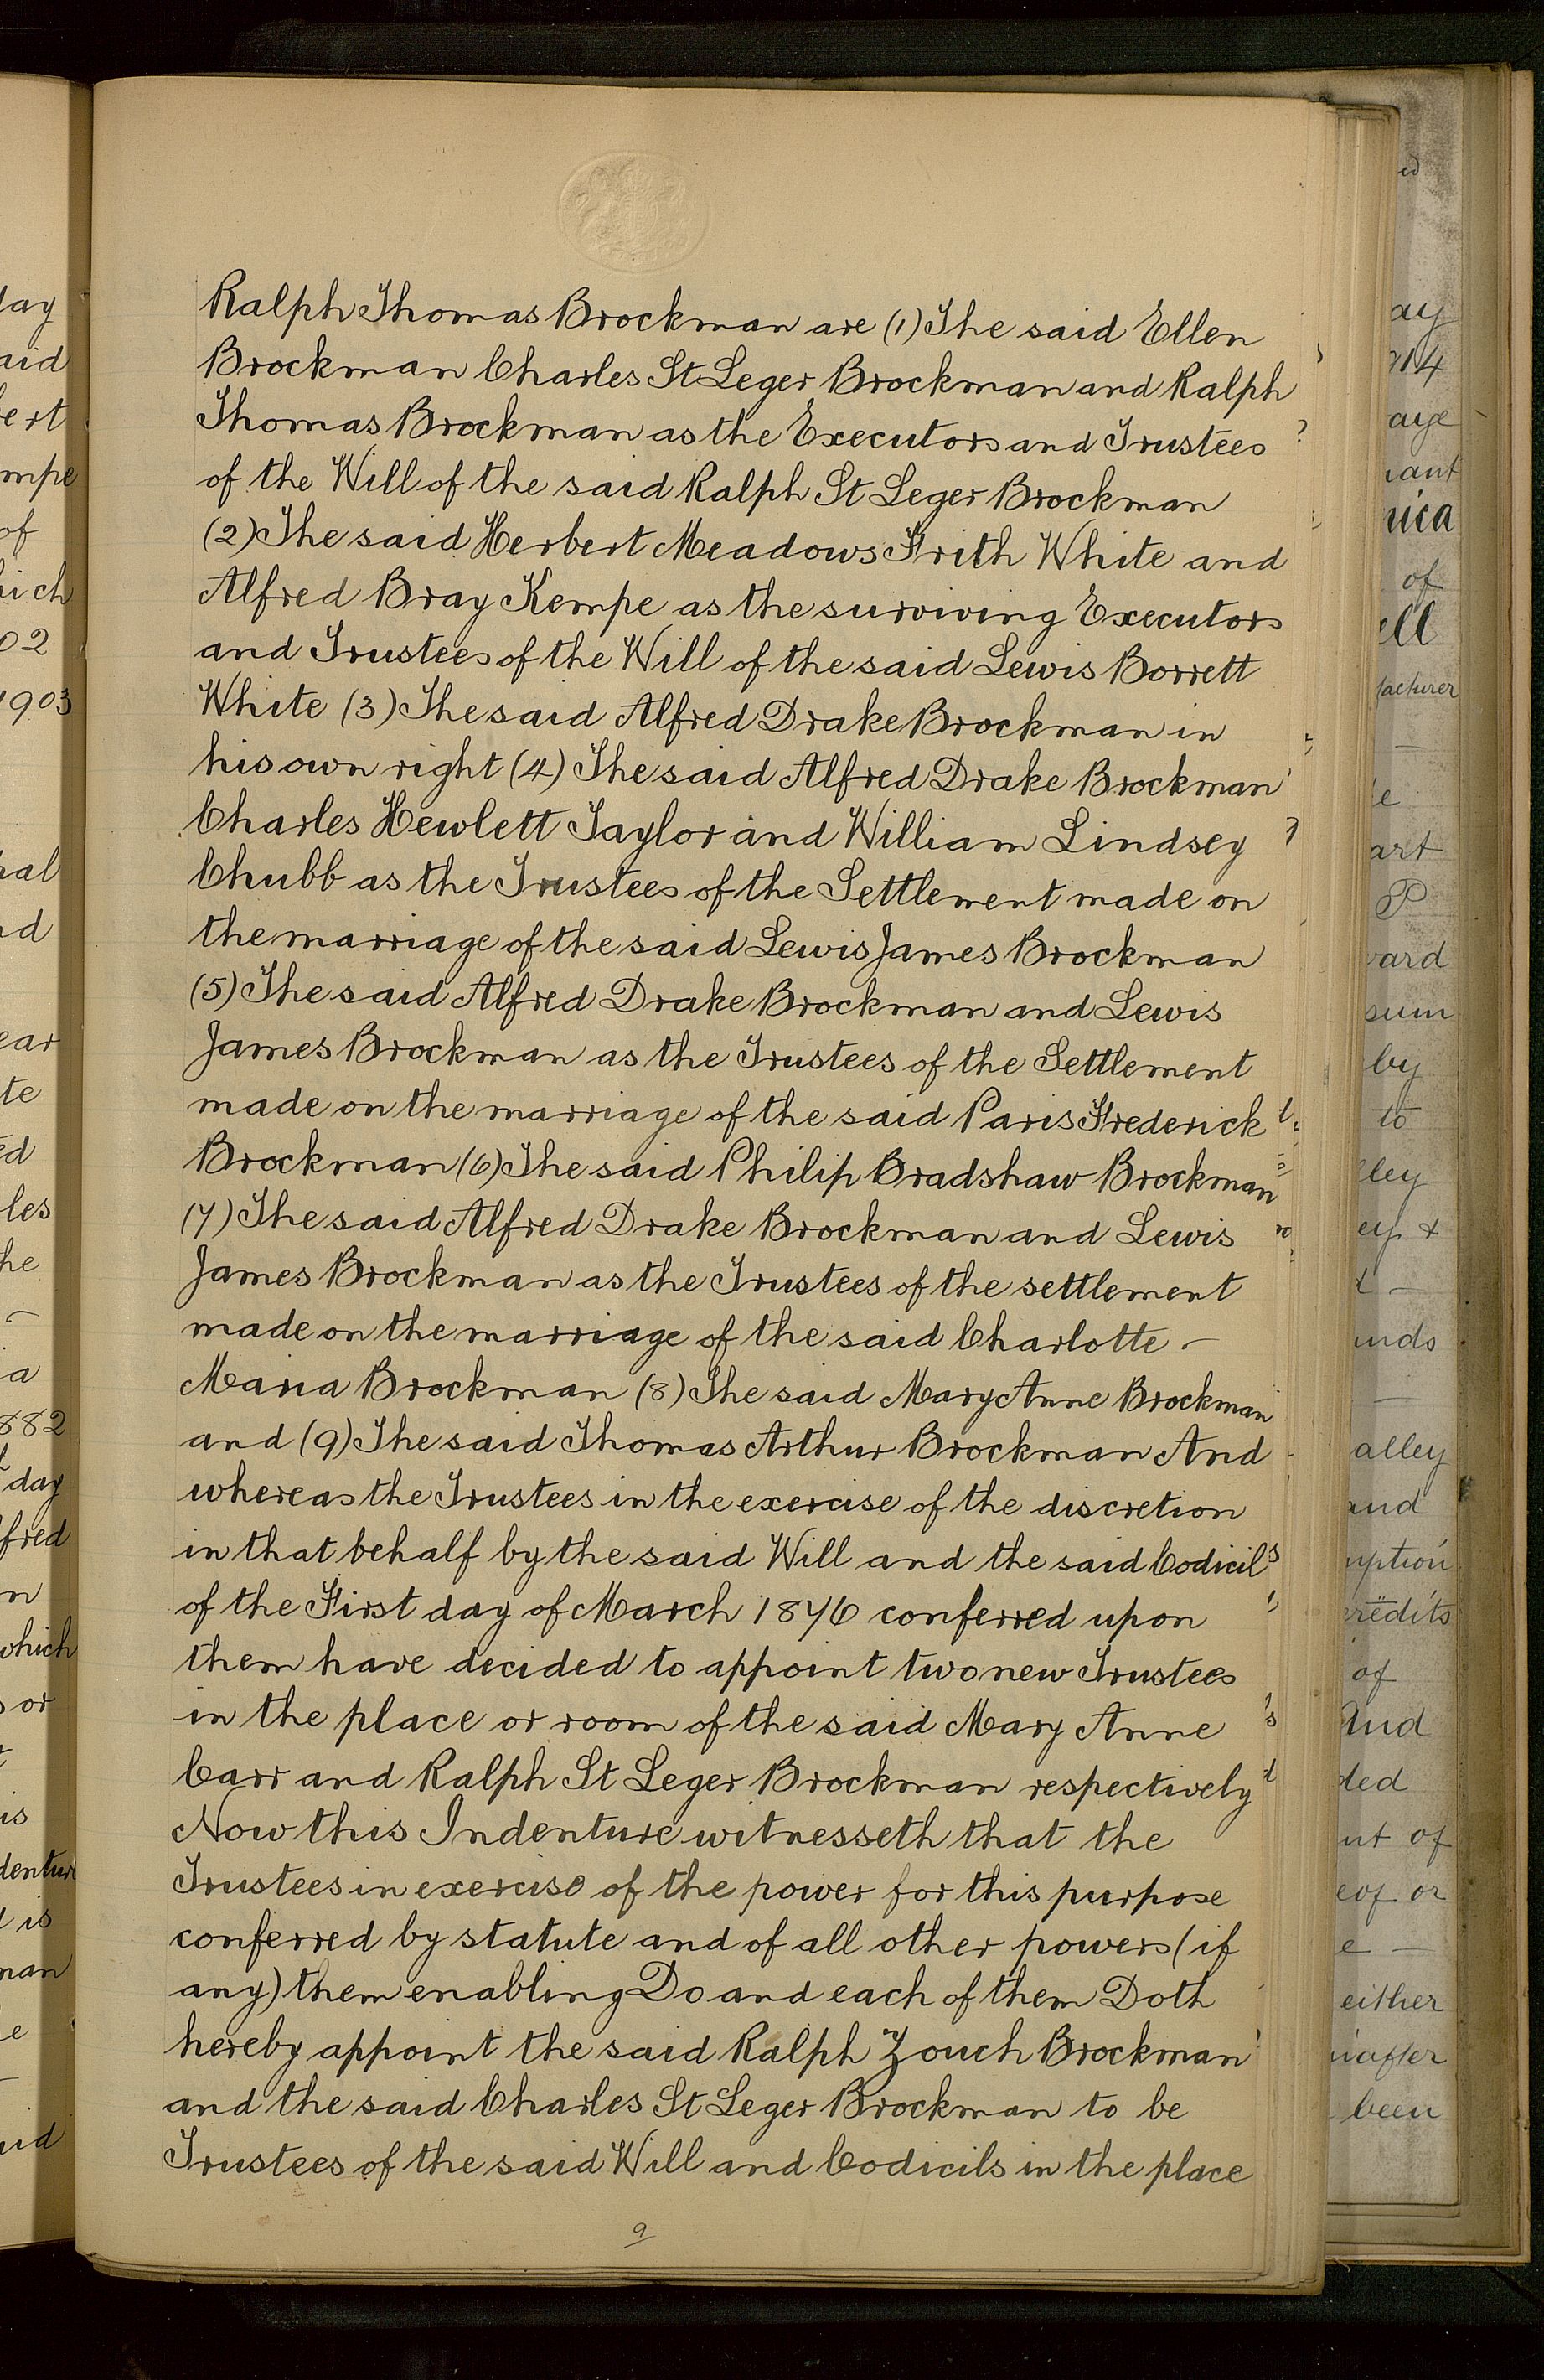 Ralph Thomas Brockman are (1) The said Ellen
Brockman Charles St Leger Brockman and Ralph
Thomas Brockman as the Executors and Trustees
of the Will of the said Ralph St Leger Brockman
(2) The said Herbert Meadows Frith White and
Alfred Bray Kempe as the surviving Executors
and Trustees of the Will of the said Lewis Borrett
White (3) The said Alfred Drake Brockman in
his own right (4) The said Alfred Drake Brockman
Charles Hewlett Taylor and William Lindsey
Chubb as the Trustees of the Settlement made on
the marriage of the said Lewis James Brockman
(5) The said Alfred Drake Brockman and Lewis
James Brockman as the Trustees of the Settlement
made on the marriage of the said Paris Frederick
Brockman (6) The said Philip Bradshaw Brockman
(7) The said Alfred Drake Brockman and Lewis
James Brockman as the Trustees of the settlement
made on the marriage of the said Charlotte -
Maria Brockman (8) The said Mary Anne Brockman
and (9) The said Thomas Arthur Brockman And
whereas the Trustees in the exercise of the discretion
in that behalf by the said Will and the said Codicil
of the First day of March 1876 conferred upon
them have decided to appoint two new Trustees
in the place or room of the said Mary Anne
Carr and Ralph St Leger Brockman respectively
Now this Indenture witnesseth that the
Trustees in exercise of the power for this purpose
conferred by statute and of all other powers (if
any) them enabling Do and each of them Doth
hereby appoint the said Ralph Zouch Brockman
and the said Charles St Leger Brockman to be
Trustees of the said Will and Codicils in the place
9